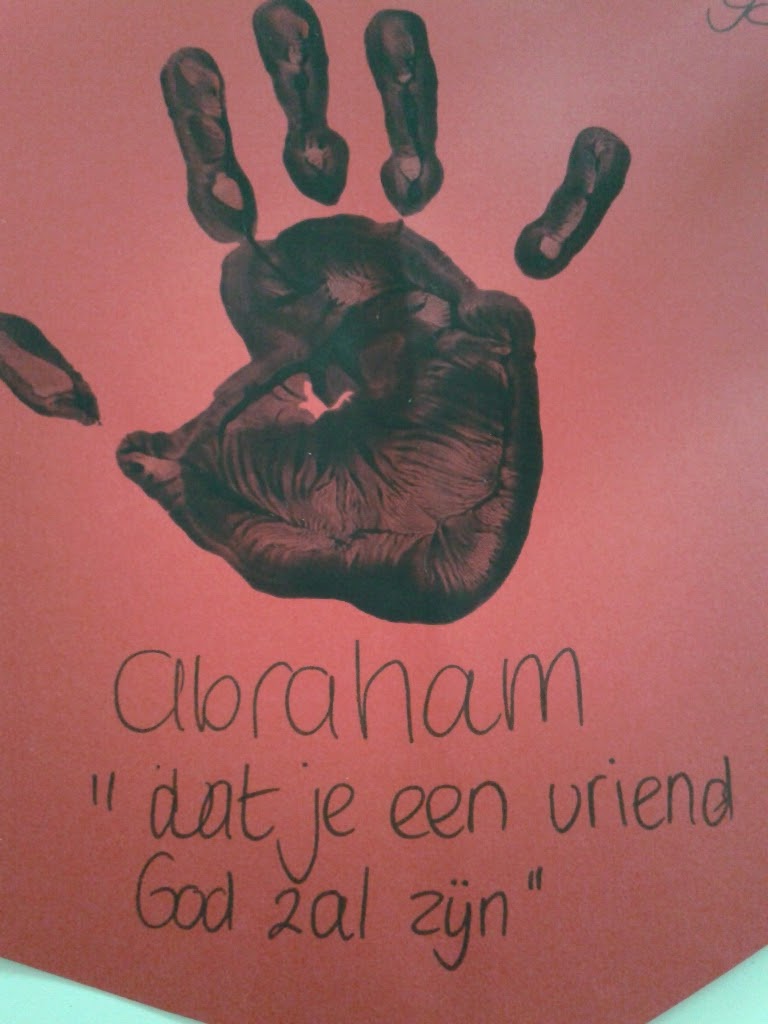 abraham
"dat je een vriend
God zal zijn"